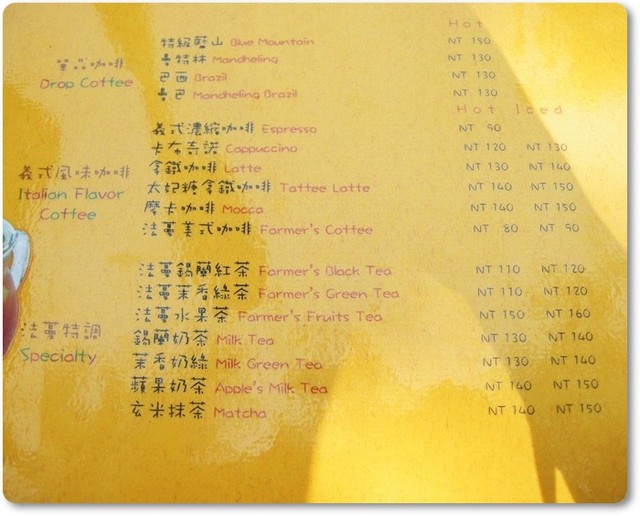 Hot
特級藍山 Blue Mountain NT 150
單品咖啡 曼特林 Mandheling NT 130
Drop Coffee 巴西 Brazil NT 130
曼巴 Mandheling Brazil NT 130
Hot Iced
義式濃縮咖啡 Espresso NT 90
卡布奇諾 Cappuccino NT 120 NT 130
義式風味咖啡 拿鐵咖啡 Latte NT 130 NT 140
Italian Flavor 太妃糖拿鐵咖啡 Taffee Latte NT 140 NT 150
Coffee 摩卡咖啡 Mocca NT 140 NT 150
法蔓美式咖啡 Farmer's Coffee NT 80 NT 90
法蔓錫蘭紅茶 Farmer's Black Tea NT 110 NT 120
法蔓茉香綠茶 Farmer's Green Tea NT 110 NT 120
法蔓水果茶 Farmer's Fruits Tea NT 150 NT 160
法蔓特調 錫蘭奶茶 Milk Tea NT 130 NT 140
Specialty 茉香奶綠 Milk Green Tea NT 130 NT 140
蘋果奶茶 Apple's Milk Tea NT 140 NT 150
玄米抹茶 Matcha NT 140 NT 150